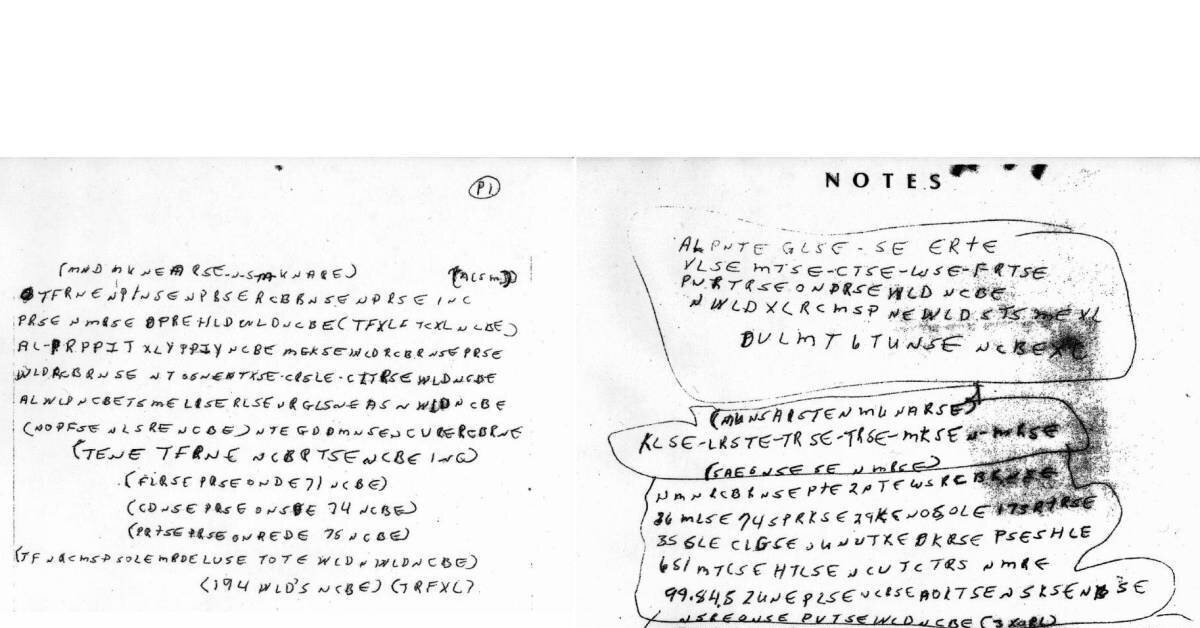 P1
(MND MKNEARSE-N-S-MKNARE) (ACSM)
TFRNE NPINSENPRSERCBRNSENPRSE INC
PRSE NMRSE OPREHLDWLDNCBE(TFXLF TCXL NCBE)
AL-PRPPIT XLYPPIY NCBE MGKSEWLDRCBRNSEPRSE
WLDRCBRNSE NTSGNENTXSE-CRSLE-CITRSEWLDNCBE
ALWLDNCBETSMELRSERLSEURGLSNEASNWLDNCBE
(NOPFSENLSRENCBE)NTEGDDMNSENCURERCBRNE
(TENE TFRNE NCBRTSENCBE ING)
(FLRSE PRSE ONDE 71 NCBE)
(CDNSE PRSE ONSDE 74 NCBE)
(PRTSE PRSE ONREDE 75 NCBE)
(TFNRCMSP SOLEMRDELUSE TOTE WLDNWLDNCBE)
(194 WLD'S NCBE) (TRFXL)
NOTES
ALPNTE GLSE-SE ERTE
VLSE MTSE-CTSE-WSE-FRTSE
PNRTRSE ONPRSE WLD NCBE
NWLDXLRCMSP NEWLDSTSMEXL
DULMT6TUNSE NCBEXC
(MUNSARSTENMUNARSE)
KLSE-LRSTE-TRSE-TRSE-MKSEN-MRSE
(SAEGNSE SE NMRSE)
NMNRCBRNSEPTE2PTEWSRCBRNSE
36 MLSE 74SPRKSE29KENOSOLE 173RTRSE
35 GLE CLGSE UNUTXE DKRSE PSESHLE
651MTCSE HTLSE NCUTCTRS NMRE
99.84.5 2UNEPLSE NCRSEAOLTSENSKSENBSE
NSREONSE PUTSEWLDNCBE (3XORL)